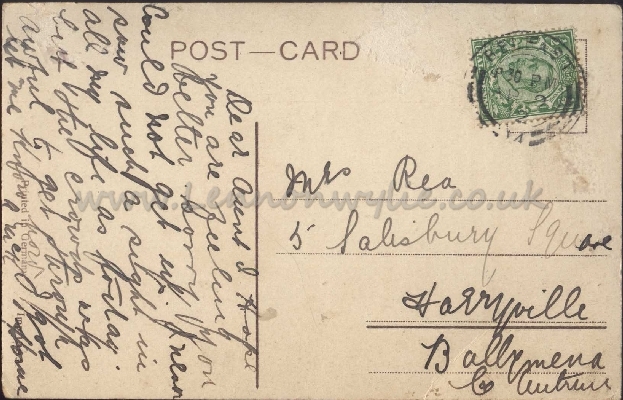 POST—CARD
Dear Aunt I Hope
you are feeling
better sorry you
could not get up. I never
saw such a sight in
all my life as today.
but the crowds was
awful to get through
let me know
I got
home
Mrs Rea
5 Salisbury Square
Harryville
Ballymena
Co Antrim
Printed in Germany
www.Lennonwylie.co.uk